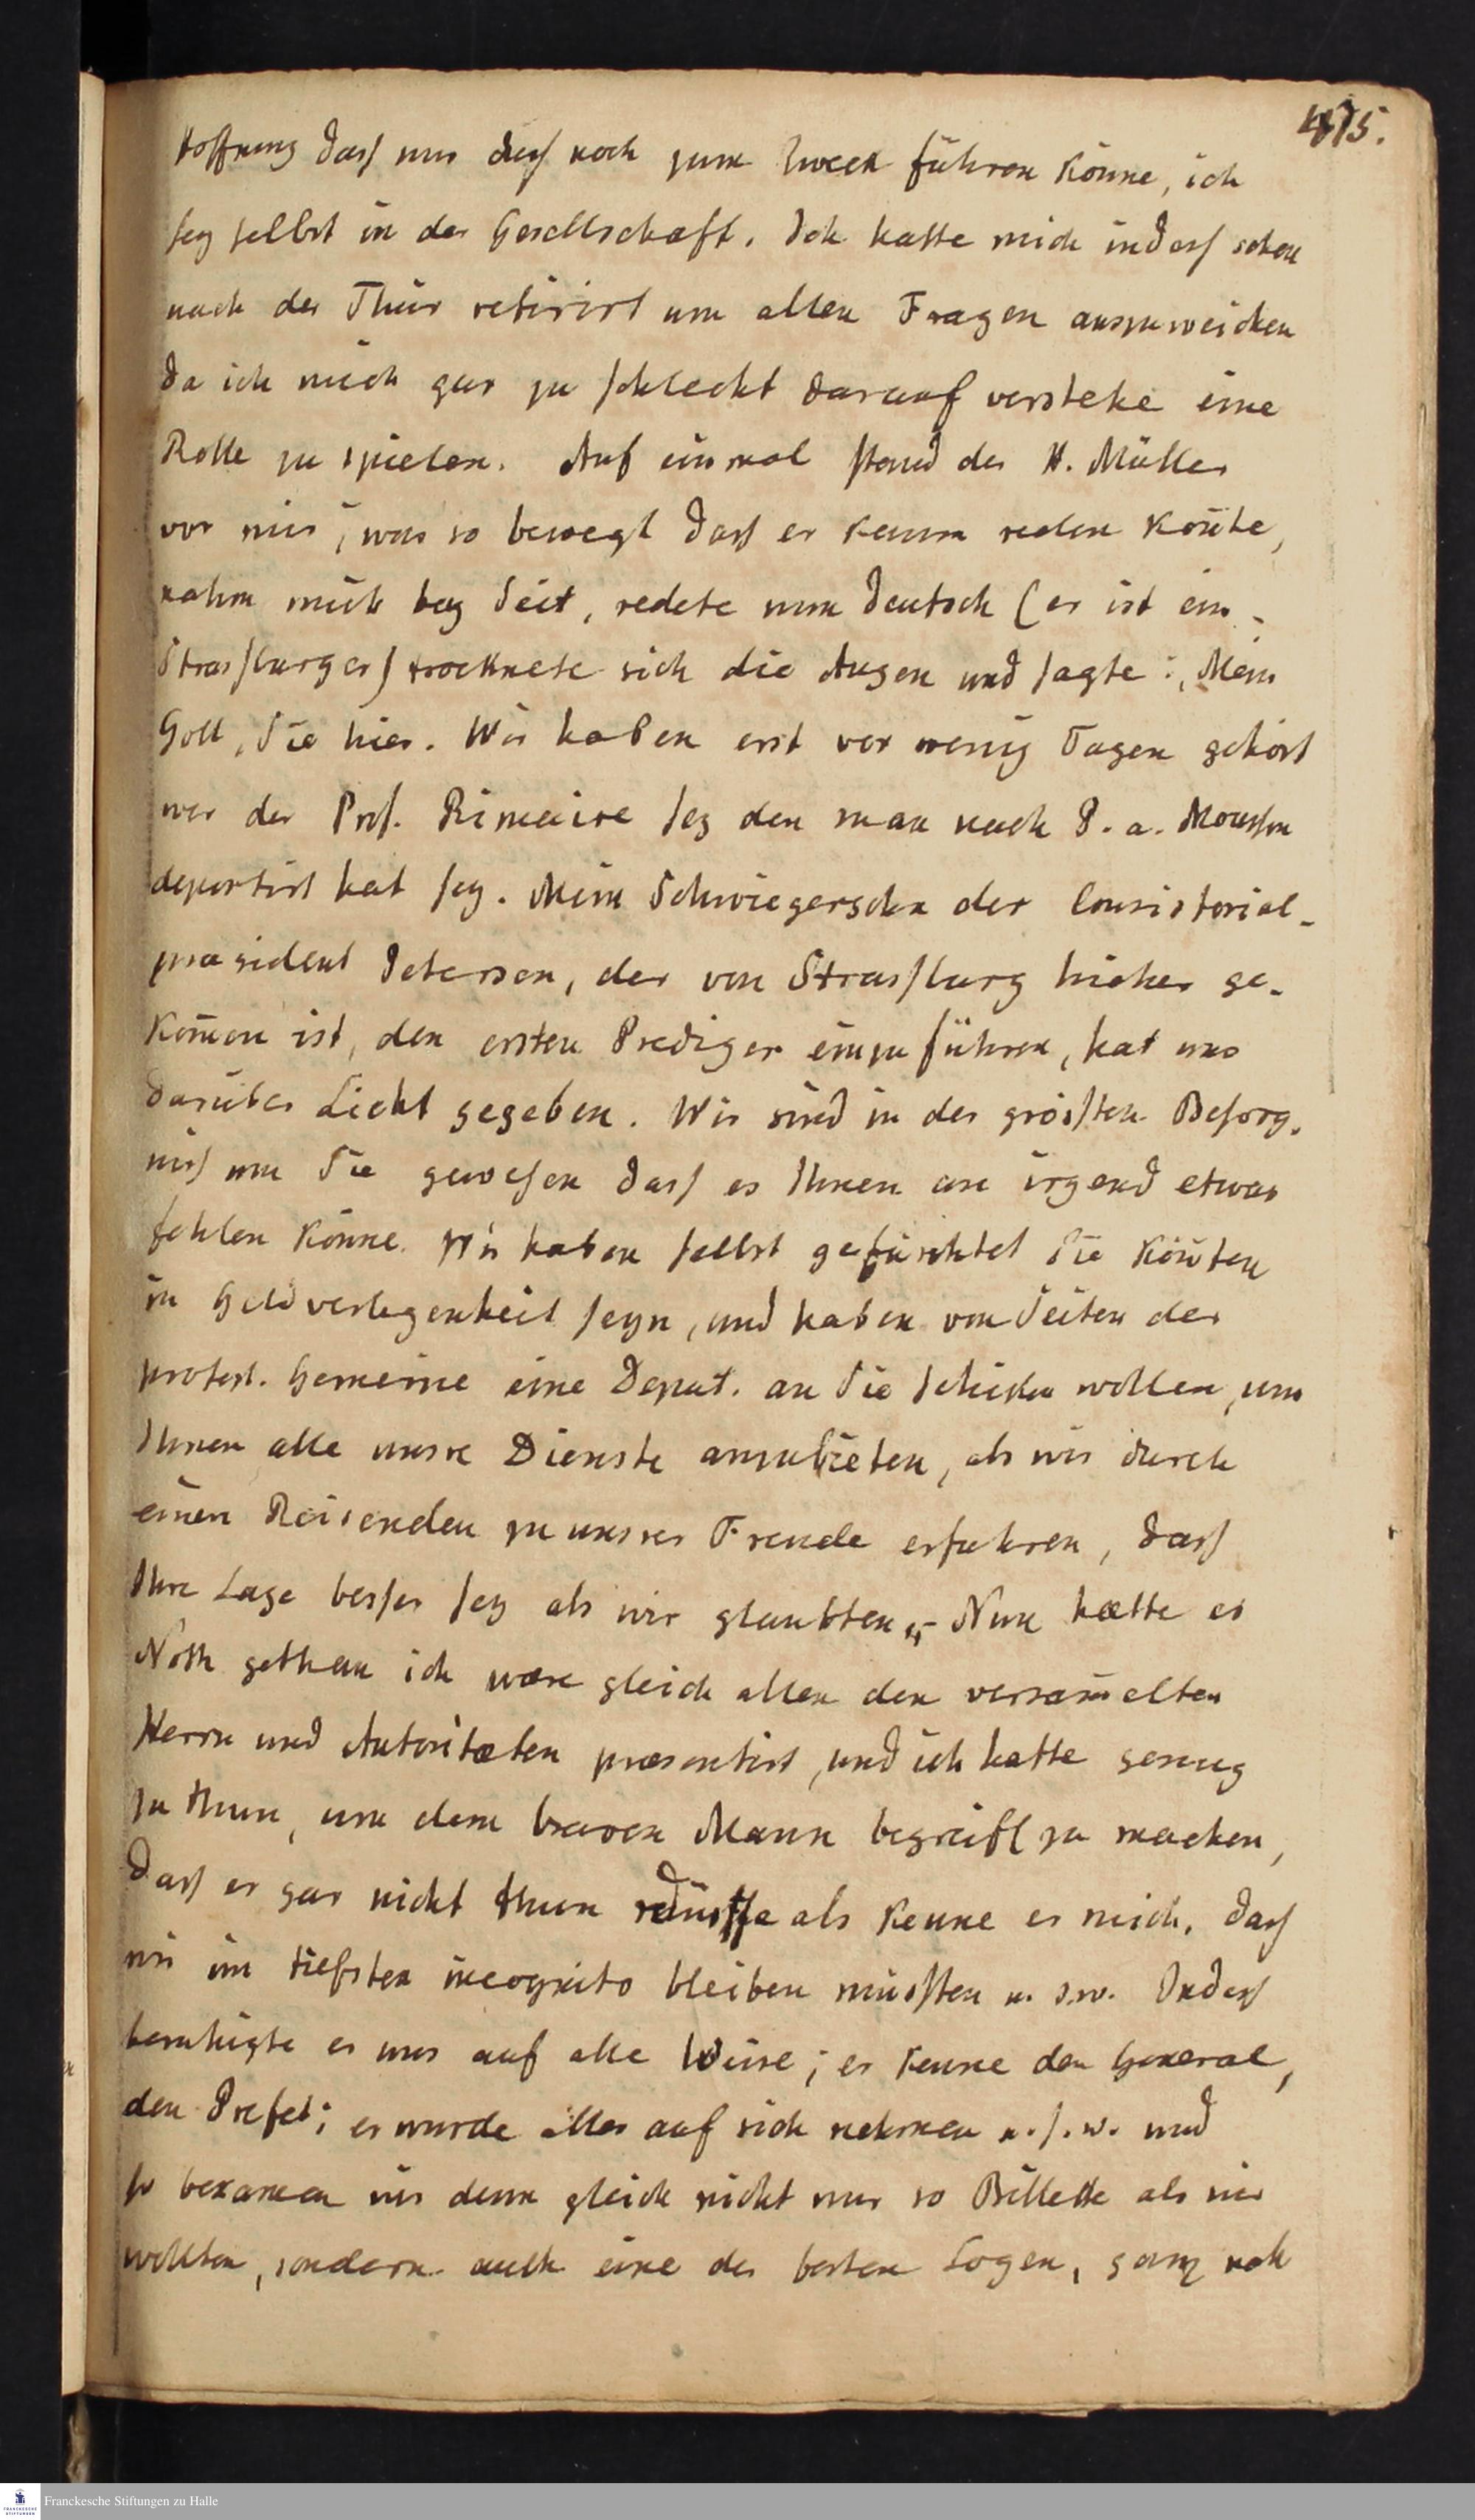 475.
Hoffnung dass uns diess noch zum Zweck führen könne, ich
sey selbst in der Gesellschaft. Ich hatte mich indess schon
nach der Thür retirirt um allen Fragen auszuweichen
da ich mich gar zu schlecht darauf verstehe eine
Rolle zu spielen. Auf einmal stand der H. Müller
vor mir, war so bewegt dass er kaum reden kon̄te,
nahm mich bey Seit, redete nun deutsch (er ist ein
Strassburger) trocknete sich die Augen und sagte: „Mein
Gott, Sie hier. Wir haben erst vor wenig Tagen gehört
wer der Prof. Rimaire sey den man nach P. a. Mousson
deportirt hat sey. Mein Schwiegersohn der Consistorial-
præsident Petersen, der von Strassburg hieher ge-
kom̄en ist, den ersten Prediger einzuführen, hat uns
darüber Licht gegeben. Wir sind in der grössten Besorg-
niss um Sie gewesen dass es Ihnen an irgend etwas
fehlen könne. Wir haben selbst gefürchtet Sie kön̄ten
in Geldverlegenheit seyn, und haben von Seiten der
protest. Gemeine eine Deput. an Sie schicken wollen, um
Ihnen alle unsre Dienste anzubieten, als wir durch
einen Reisenden zu unsrer Freude erfuhren, dass
Ihre Lage besser sey als wir glaubten„ - Nun hætte es
Noth gethan ich wære gleich allen den versam̄elten
Herrn und Autoritæten præsentirt, und ich hatte genug
zu thun, um dem braven Mann begreifl zu machen,
dass er gar nicht thun dürffe als kenne er mich, dass
wir im tiefsten incognito bleiben müssten u. s.w. Indess
beruhigte er uns auf alle Weise; er kenne den General,
den Prefet; er wurde alles auf sich nehmen u. s. w. und
so bekamen wir denn gleich nicht nur so Billette als wir
wollten, sondern auch eine der besten Logen, ganz nah
Franckesche Stiftungen zu Halle